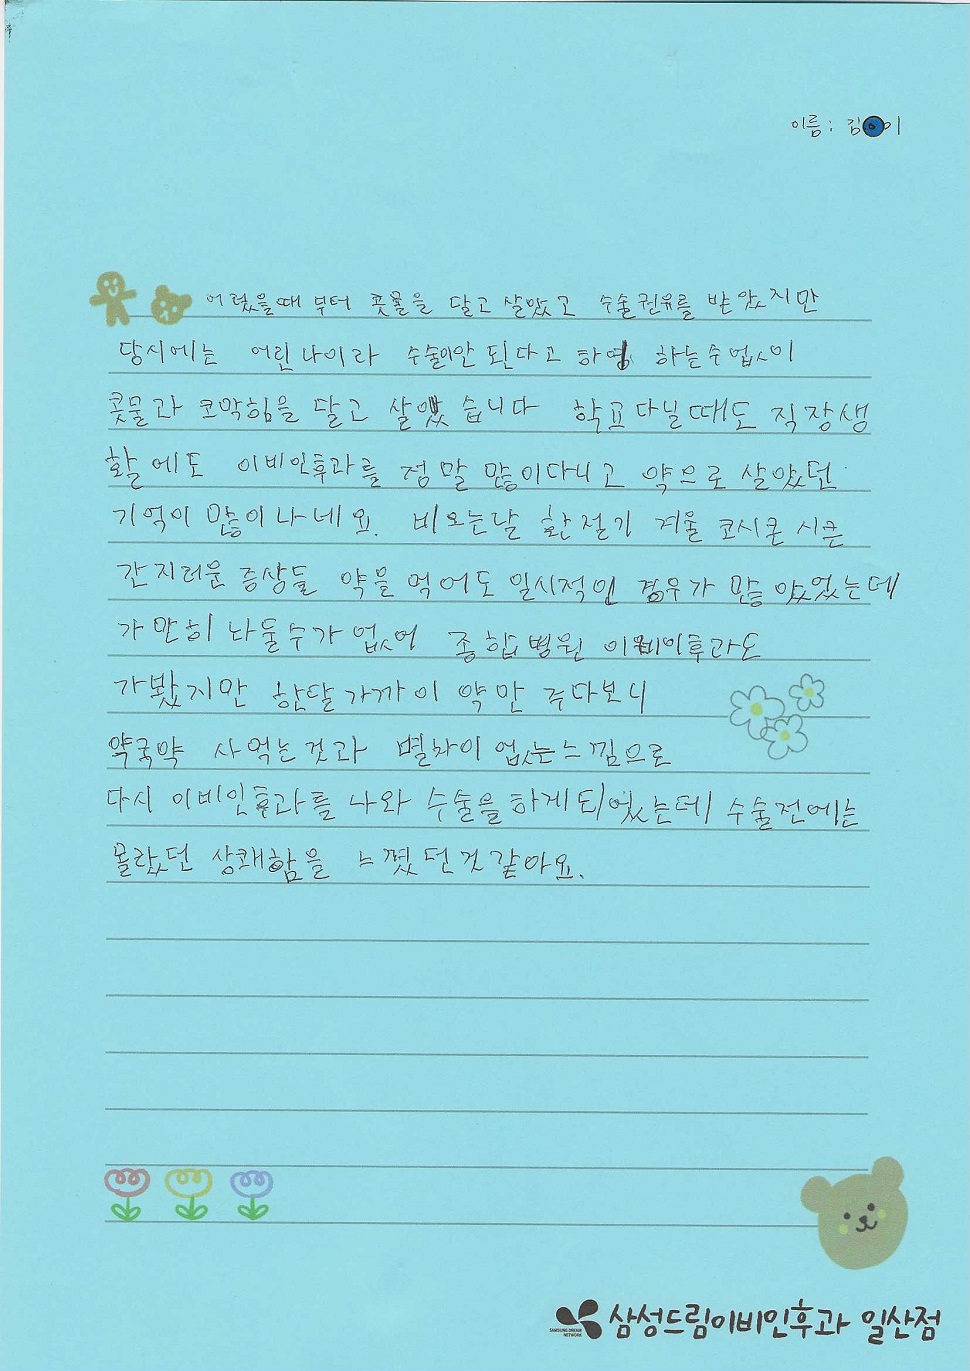 이름: 김 이
어렸을때 부터 콧물을 달고 살았고 수술권유를 받았지만
당시에는 어린나이라 수술이안 된다고 하여 하는수없이
콧물과 코막힘을 달고 살았습니다 학교다닐때도 직장생
활에도 이비인후과를 정말 많이다니고 약으로 살았던
기억이 많이나네요. 비오는날 환절기 겨울 코시큰 시큰
간지러운 증상들 약을 먹어도 일시적인 경우가 많았었는데
가만히 나둘수가 없어 종합병원 이비인후과도
가봤지만 한달가까이 약만 주다보니
약국약 사먹는것과 별차이 없는느낌으로
다시 이비인후과를 나와 수술을하게되었는데 수술전에는
몰랐던 상쾌함을 느꼈던것같아요.
SAMSUNG DREAM
NETWORK
삼성드림이비인후과 일산점